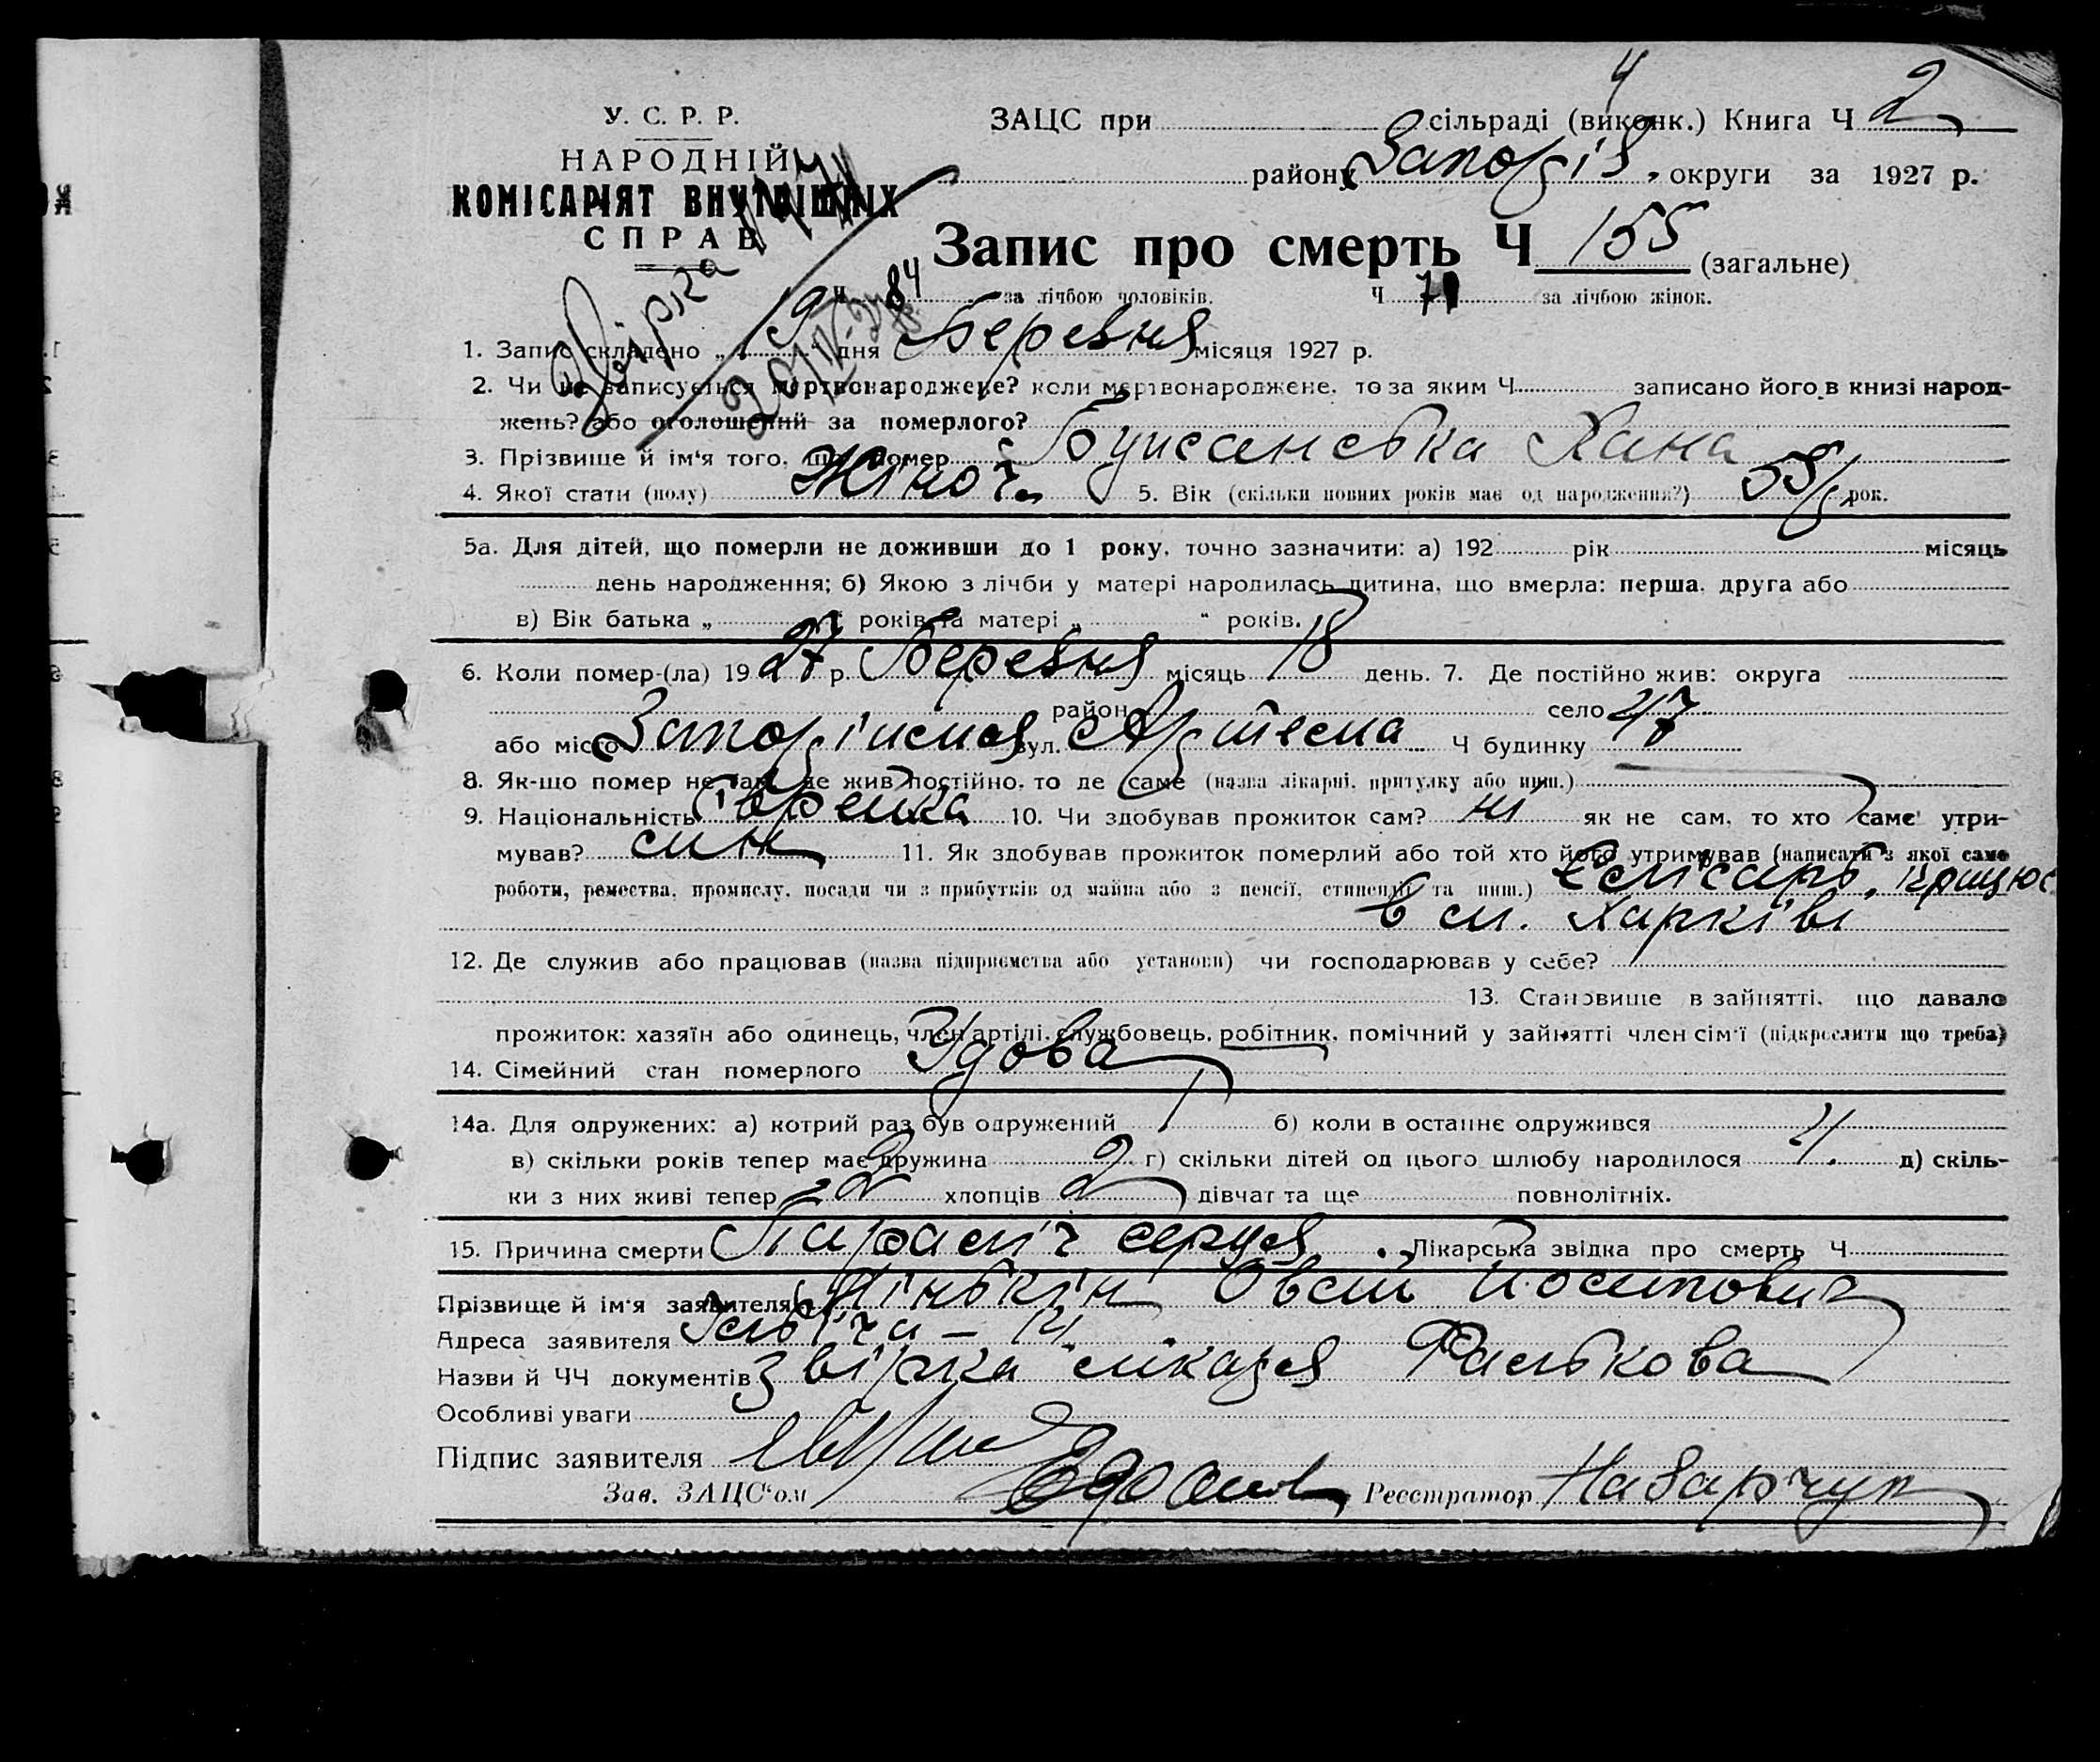 4
У. С. Р. Р.
ЗАЦС при сільраді (виконк.) Книга Ч 2
НАРОДНІЙ
району Запоріз. округи за 1927 р.
КОМІСАРІЯТ ВНУТРІШНІХ
СПРАВ
Запис про смерть Ч 155 (загальне)
Ч 84 за лічбою чоловіків. Ч 71 за лічбою жінок.
Звірка
1. Запис складено „ 19 “ дня Березня місяця 1927 р.
2. Чи не записується мертвонароджене? коли мертвонароджене, то за яким Ч записано його в книзі народ-
жень? або оголошений за померлого?
3. Прізвище й ім'я того, що помер Хана
4. Якої стати (полу) Жіноч. 5. Вік (скільки повних років має од народження?) 55 рок.
5а. Для дітей, що померли не доживши до 1 року, точно зазначити: а) 192 рік місяць
день народження; б) Якою з лічби у матері народилась дитина, що вмерла: перша, друга або
в) Вік батька „ “ років та матері „ “ років.
6. Коли помер-(ла) 1927 р. Березня місяць 18 день. 7. Де постійно жив: округа
район село
або місто Запоріжжя вул. Артема Ч будинку 47
8. Як-що помер не там, де жив постійно, то де саме (назва лікарні, притулку або инш.)
9. Національність Єврейка 10. Чи здобував прожиток сам? ні як не сам, то хто саме утри-
мував? син 11. Як здобував прожиток померлий або той хто його утримував (написати з якої саме
роботи, ремества, промислу, посади чи з прибутків од майна або з пенсії, стипендії та инш.) Слісарь, працює
в м. Харківі
12. Де служив або працював (назва підприємства або установи) чи господарював у себе?
13. Становище в зайнятті, що давало
прожиток: хазяїн або одинець, член артілі, службовець, робітник, помічний у зайнятті член сім'ї (підкреслити що треба)
14. Сімейний стан померлого Удова
14а. Для одружених: а) котрий раз був одружений 1 б) коли в останнє одружився
в) скільки років тепер має дружина г) скільки дітей од цього шлюбу народилося 4. д) скіль-
ки з них живі тепер 2 хлопців 2 дівчат та ще повнолітніх.
15. Причина смерти Параліч серця Лікарська звідка про смерть Ч
Прізвище й ім'я заявителя Овсій Йосипович
Адреса заявителя
Назви й ЧЧ документів Звірка лікаря
Особливі уваги
Підпис заявителя
Зав. ЗАЦС'ом Реєстратор Назарчук